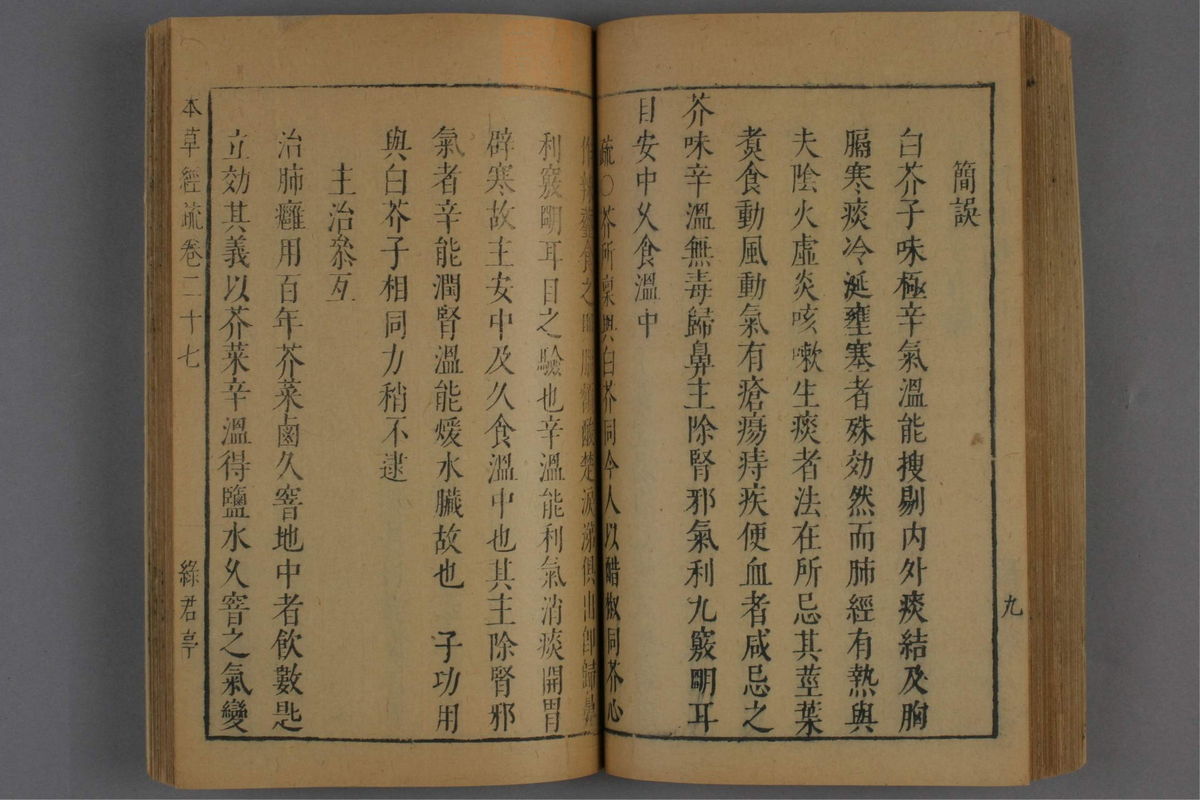 九
簡誤
白芥子味極辛氣溫能搜剔内外痰結及胸
膈寒痰冷涎壅塞者殊効然而肺經有熱與
夫陰火虛炎咳嗽生痰者法在所忌其莖葉
煑食動風動氣有瘡瘍痔疾便血者咸忌之
芥味辛溫無毒歸鼻主除腎邪氣利九竅明耳
目安中久食溫中
疏〇芥所禀與白芥同今人以醋椒同芥心
食之 淚涕俱出卽歸鼻
利竅明耳目之驗也辛溫能利氣消痰開胃
辟寒故主安中及久食溫中也其主除腎邪
氣者辛能潤腎溫能煖水臟故也 子功用
與白芥子相同力稍不逮
主治叅互
治肺癰用百年芥菜鹵久窨地中者飲數匙
立効其義以芥菜辛溫得鹽水久窨之氣變
本草經疏卷二十七 綠君亭